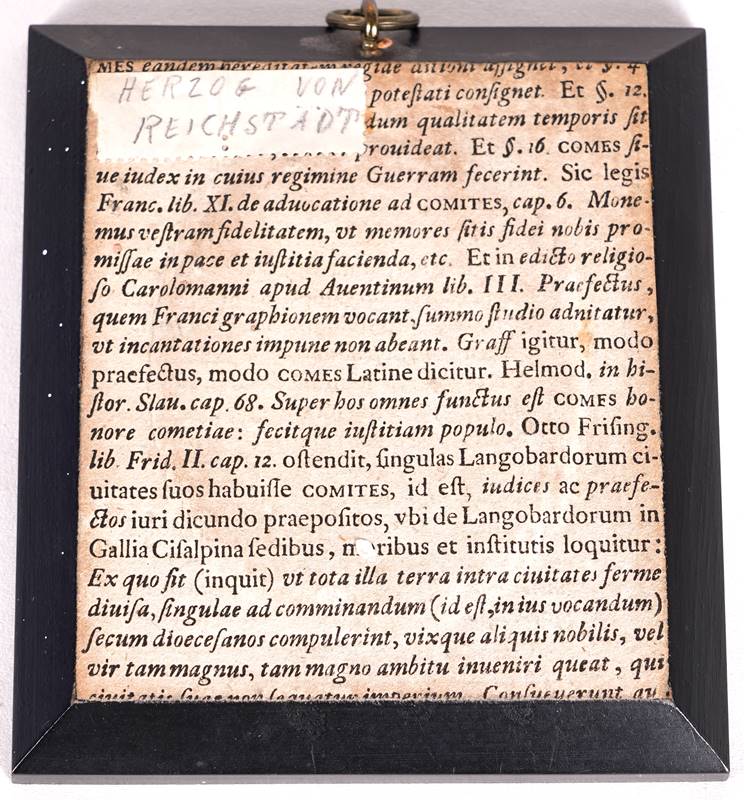 MES eandem hereditatem regiae ditioni assignet, et §. 4
HERZOG VON
REICHSTADT
potestati consignet. Et §. 12.
dum qualitatem temporis sit
prouideat. Et §. 16. COMES si-
ue iudex in cuius regimine Guerram fecerint. Sic legis
Franc. lib. XI. de aduocatione ad COMITES, cap. 6. Mone-
mus vestram fidelitatem, vt memores sitis fidei nobis pro-
missae in pace et iustitia facienda, etc. Et in edicto religio-
so Carolomanni apud Auentinum lib. III. Praefectus,
quem Franci graphionem vocant, summo studio adnitatur,
vt incantationes impune non abeant. Graff igitur, modo
praefectus, modo COMES Latine dicitur. Helmod. in hi-
stor. Slau. cap. 68. Super hos omnes functus est COMES ho-
nore cometiae: fecitque iustitiam populo. Otto Frising.
lib. Frid. II. cap. 12. ostendit, singulas Langobardorum ci-
uitates suos habuisse COMITES, id est, iudices ac praefe-
ctos iuri dicundo praepositos, vbi de Langobardorum in
Gallia Cisalpina sedibus, moribus et institutis loquitur:
Ex quo fit (inquit) vt tota illa terra intra ciuitates ferme
diuisa, singulae ad comminandum (id est, in ius vocandum)
secum dioecesanos compulerint, vixque aliquis nobilis, vel
vir tam magnus, tam magno ambitu inueniri queat, qui
ciuitatis suae non sequatur imperium. Consueuerunt au